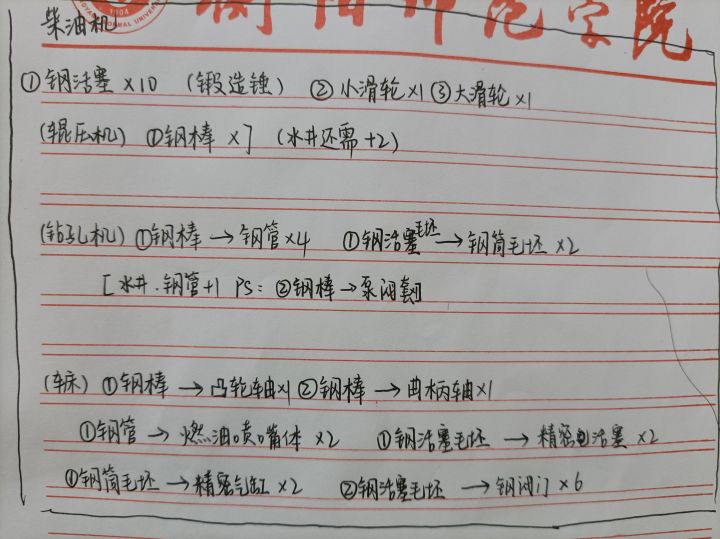 衡阳师范学院
1904
柴油机
①钢活塞×10 (锻造锤) ②小滑轮×1 ③大滑轮×1
(辊压机) ①钢棒×7 (水井还需+2)
(钻孔机) ①钢棒→钢管×4 ①钢活塞毛坯→钢筒毛坯×2
[水井.钢管+1 PS: ②钢棒→泵阀套]
(车床) ①钢棒→凸轮轴×1 ②钢棒→曲柄轴×1
①钢管→燃油喷嘴体×2 ①钢活塞毛坯→精密活塞×2
①钢筒毛坯→精密气缸×2 ②钢活塞毛坯→钢阀门×6